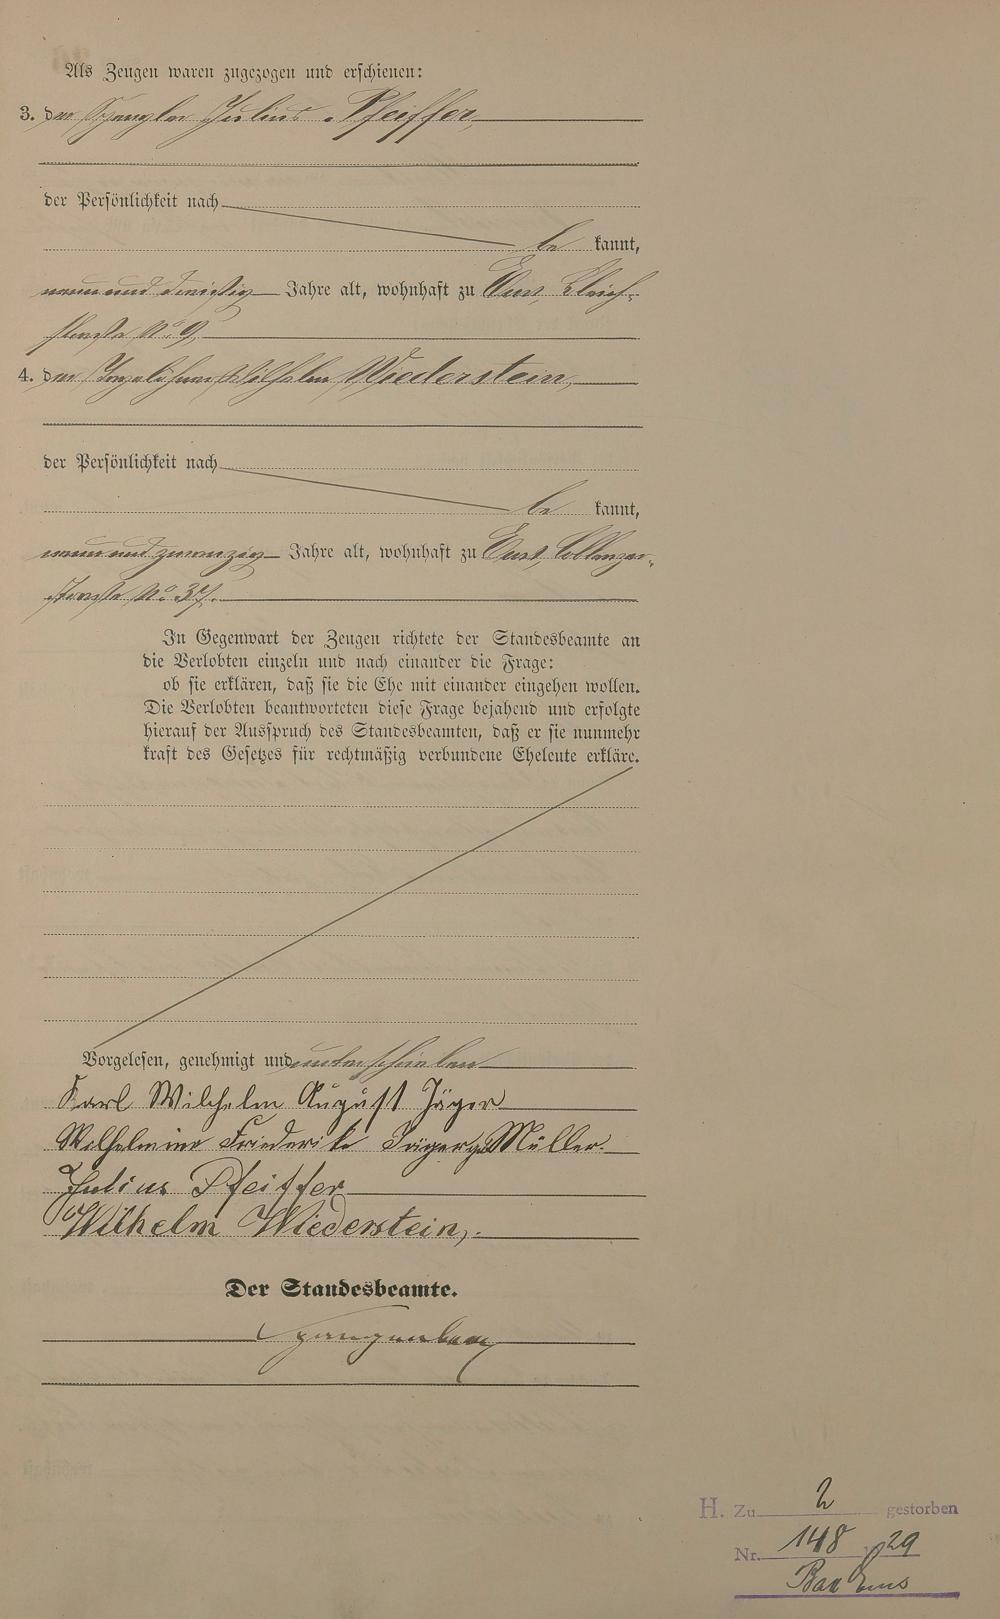 Als Zeugen waren zugezogen und erschienen:
3. der Spengler Julius Pfeiffer,
der Persönlichkeit nach
be kannt,
neun und dreißig Jahre alt, wohnhaft zu Ems, Bleich-
straße No. 9,
4. der Wilhelm Wiederstein,
der Persönlichkeit nach
be kannt,
neun und zwanzig Jahre alt, wohnhaft zu Ems, Coblenzer-
straße No. 37.
In Gegenwart der Zeugen richtete der Standesbeamte an
die Verlobten einzeln und nach einander die Frage:
ob sie erklären, daß sie die Ehe mit einander eingehen wollen.
Die Verlobten beantworteten diese Frage bejahend und erfolgte
hierauf der Ausspruch des Standesbeamten, daß er sie nunmehr
kraft des Gesetzes für rechtmäßig verbundene Eheleute erkläre.
Vorgelesen, genehmigt und unterschrieben
Karl Wilhelm August Jäger
Wilhelmine Friederike Jäger geb Müller.
Julius Pfeiffer
Wilhelm Wiederstein,.
Der Standesbeamte.
Spangenberg
H. Zu 2 gestorben
Nr. 148 29
Bad Ems